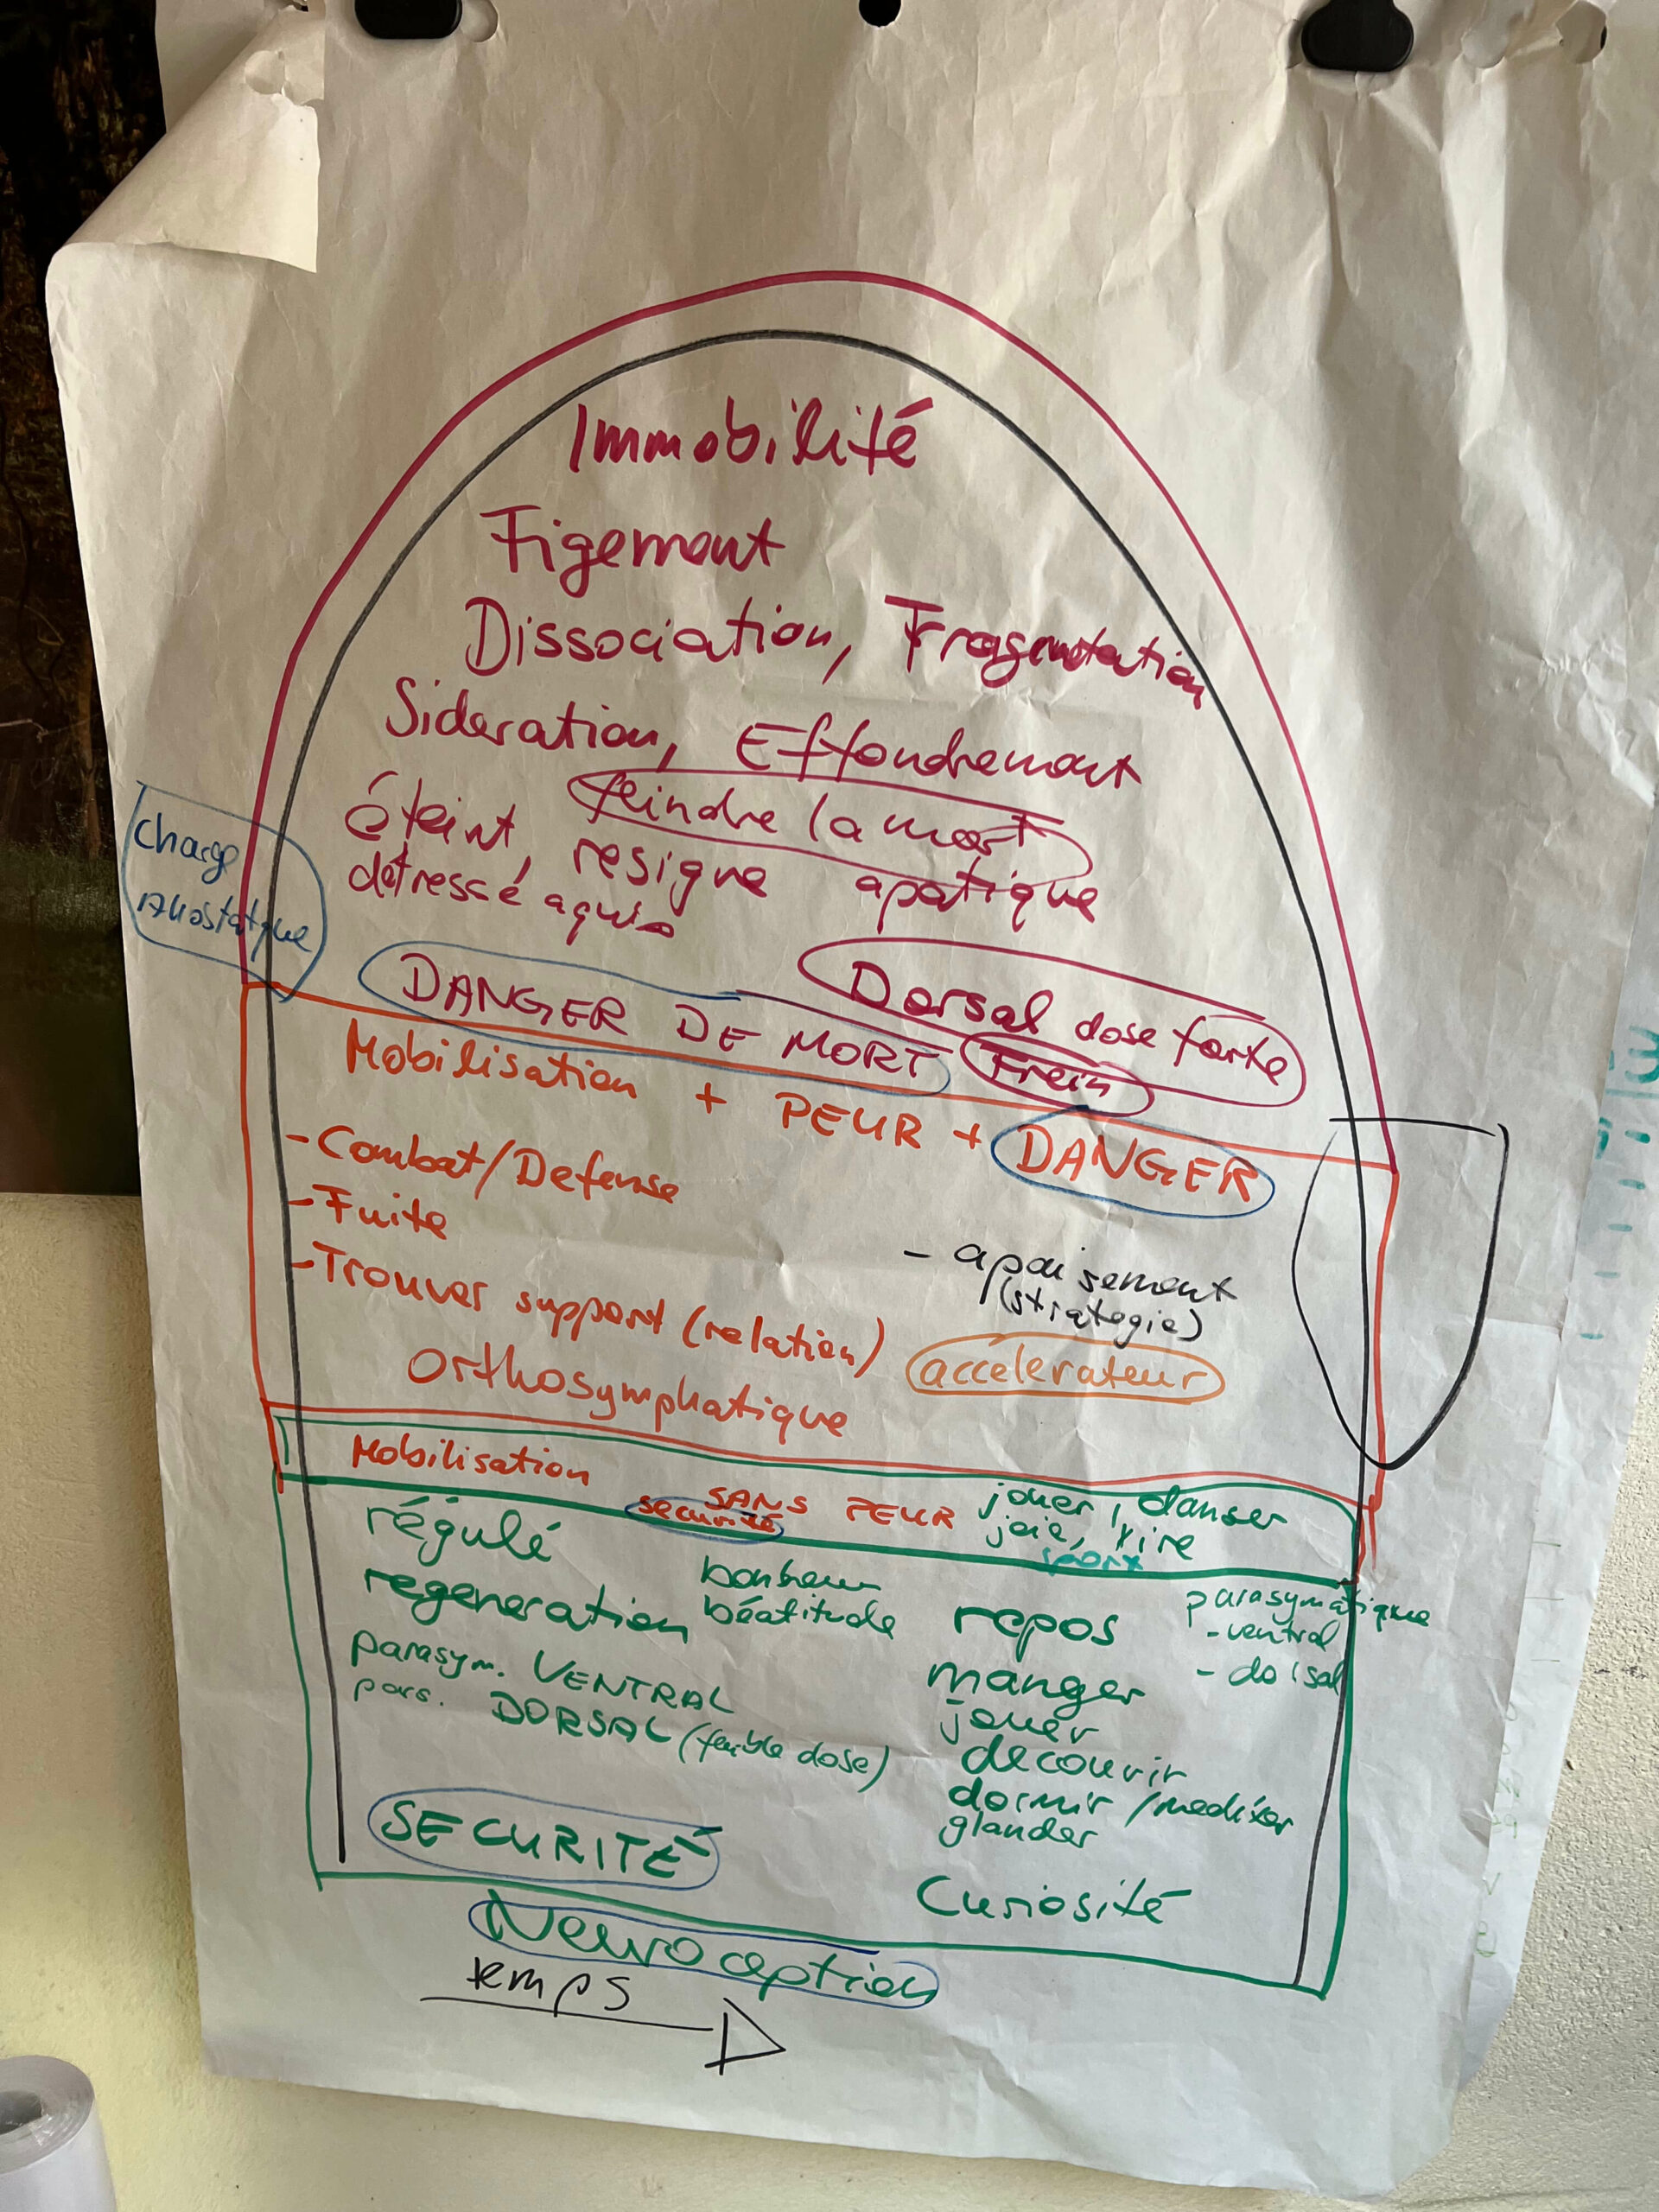 Immobilité
Figement
Dissociation, Fragmentation
Sideration, Effondrement
éteint, feindre la mort
resigne apatique
détressé aquis
charge
Allostatique
DANGER DE MORT
Dorsal dose forte
Frein
Mobilisation + PEUR + DANGER
- Combat/Defense
- Fuite
- Trouver support (relation)
- apaisement
(strategie)
accélerateur
Orthosymphatique
Mobilisation
SANS PEUR
securité
jouer, danser
joie, rire
sport
régulé
regeneration
bonheur
béatitude
parasym. VENTRAL
pars. DORSAL (faible dose)
repos
manger
jouer
decouvrir
dormir / mediter
glander
parasymatique
- ventral
- dorsal
SECURITÉ
Curiosité
Neuroception
temps